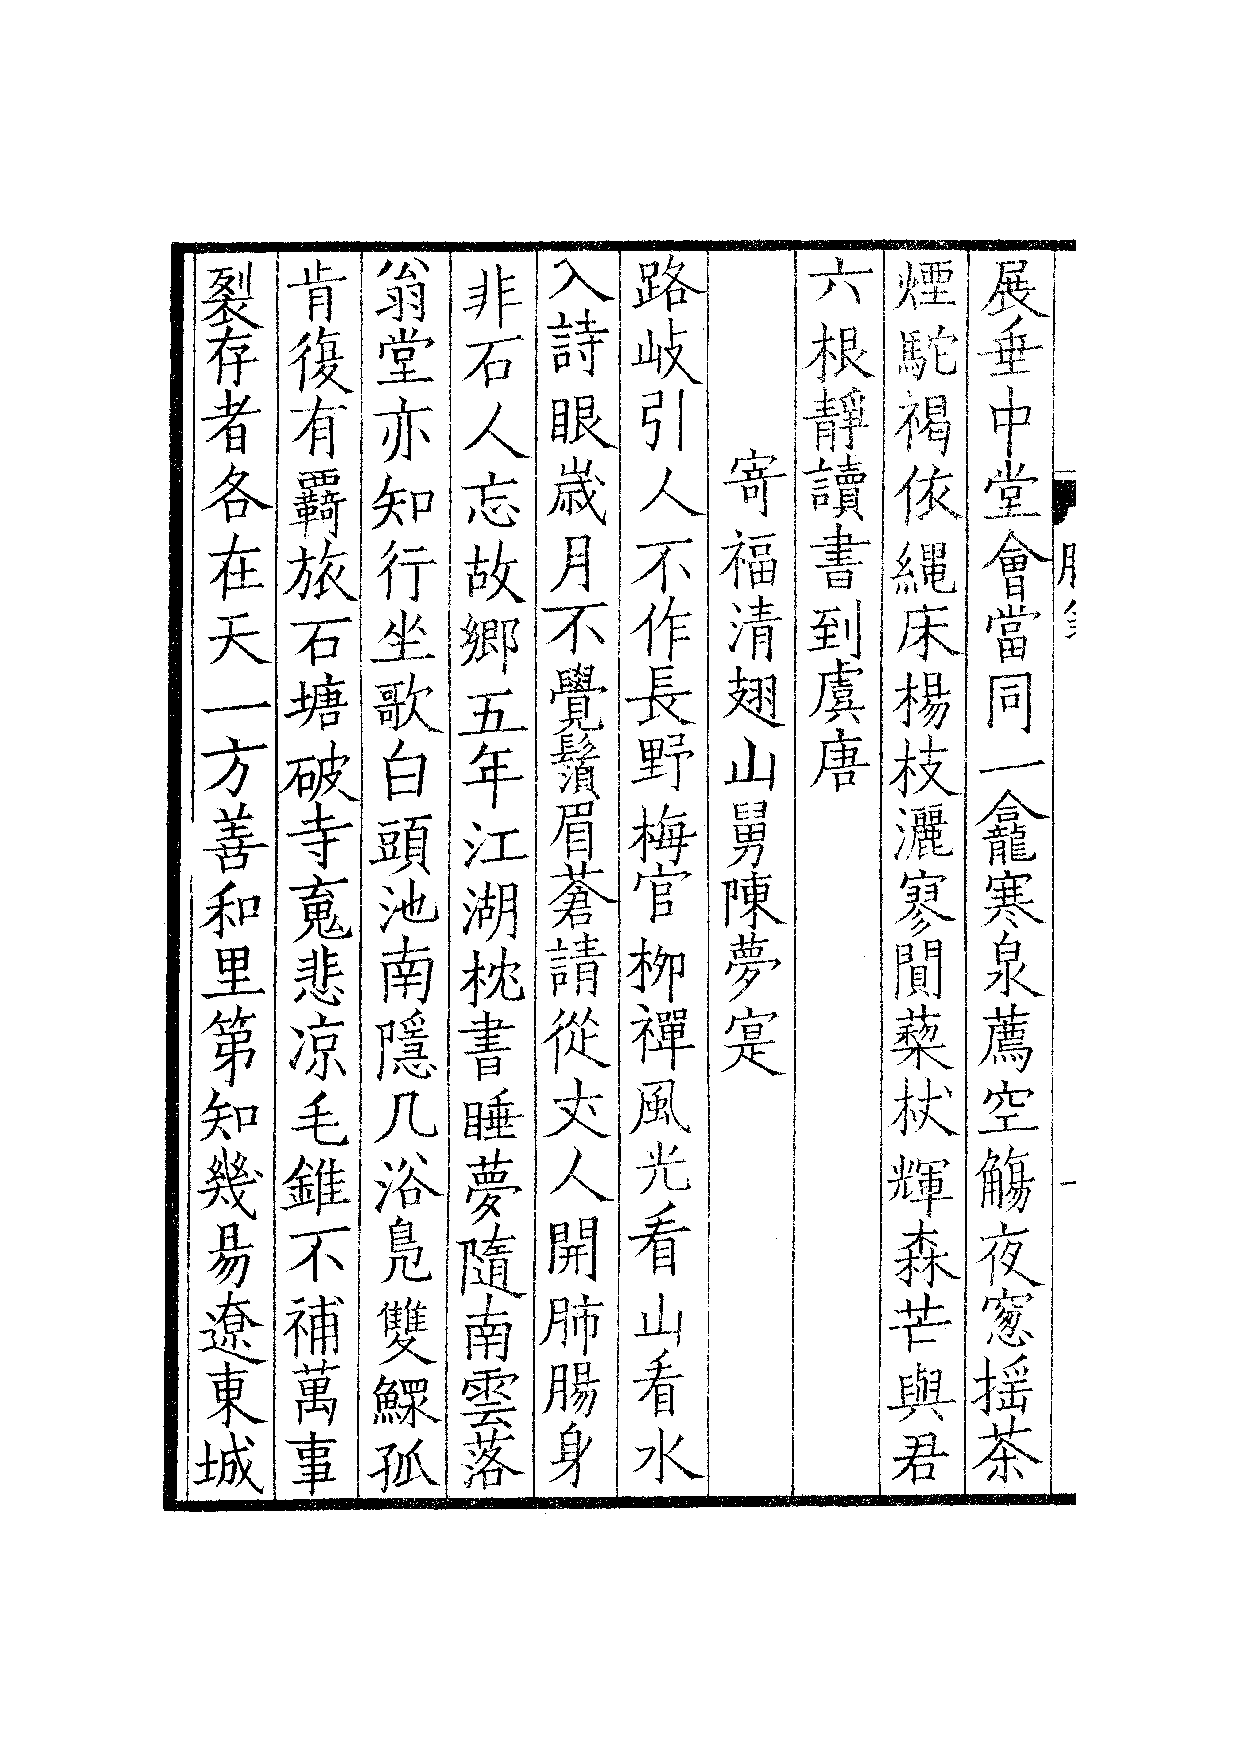 展垂中堂會當同一龕寒泉薦空觴夜窓揺茶
煙駝褐依繩床楊枝灑寥閴藜杖輝森芒與君
六根靜讀書到虞唐
寄福清翅山舅陳夢寔
路岐引人不作長野梅官柳禪風光看山看水
入詩眼歳月不覺鬚眉蒼請從丈人開肺腸身
非石人忘故鄉五年江湖枕書睡夢隨南雲落
翁堂亦知行坐歌白頭池南隱几浴鳧雙鰥孤
肯復有覊旅石塘破寺寃悲凉毛錐不補萬事
裂存者各在天一方善和里第知幾昜遼東城